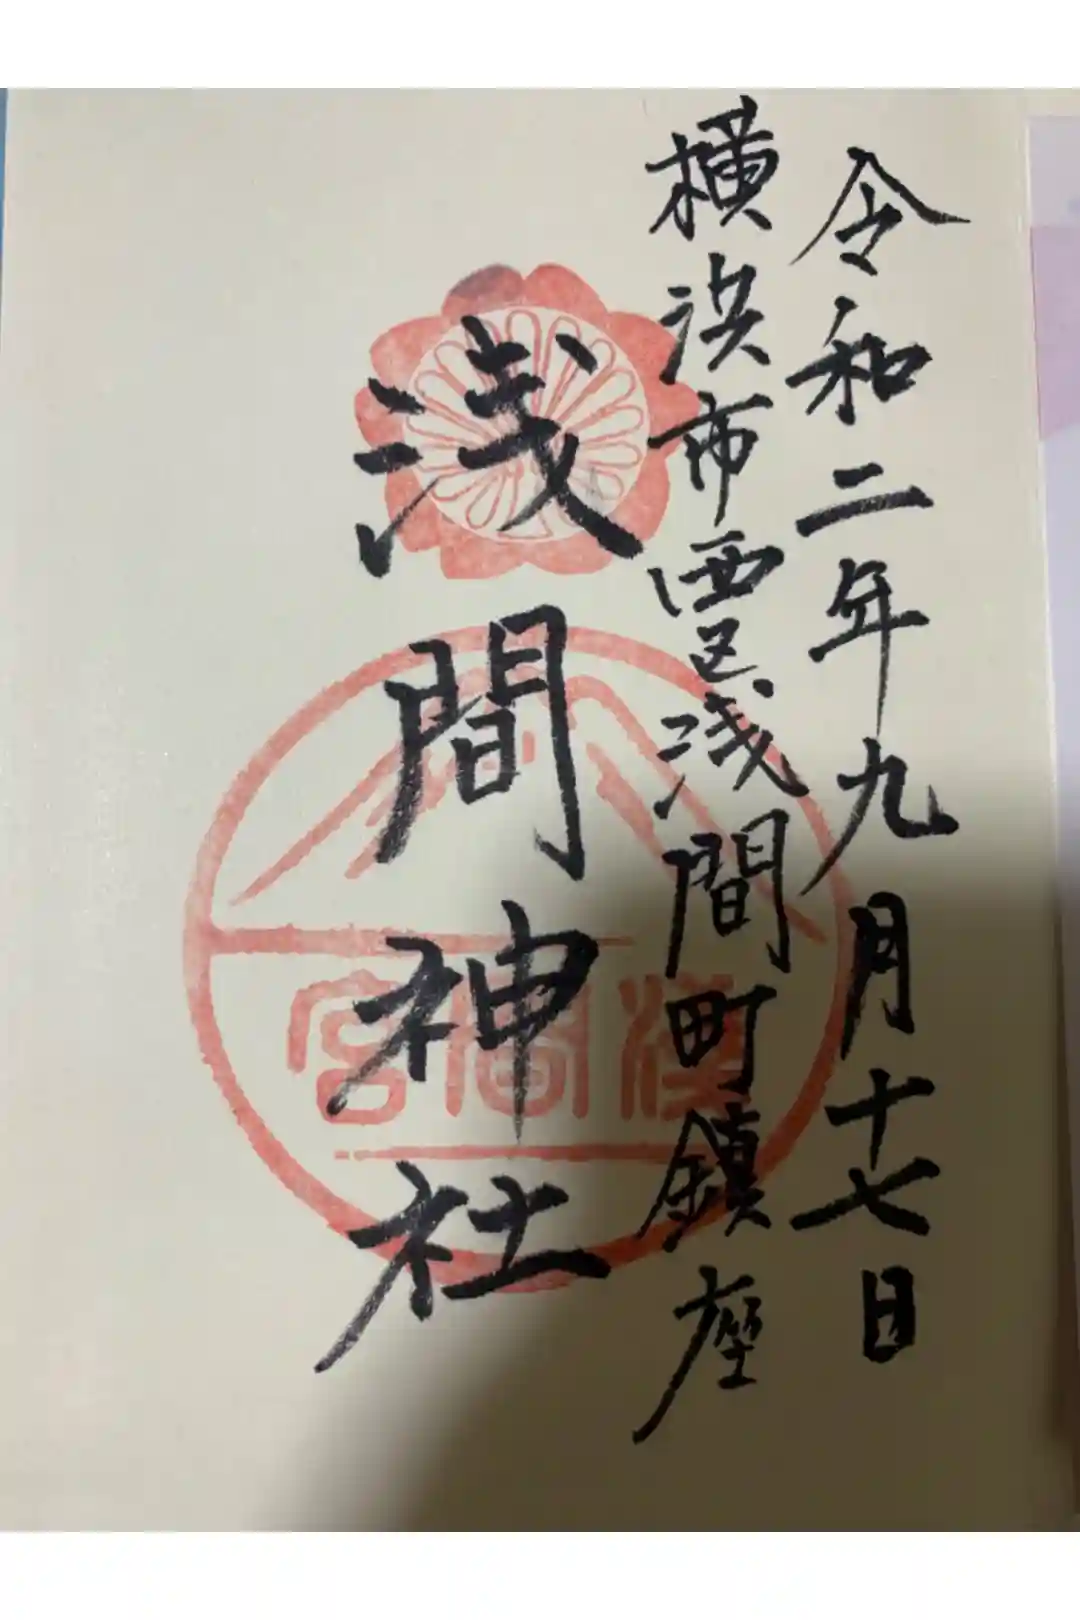 令和二年九月十七日
横浜市西区浅間町鎮座
浅間神社
浅間宮